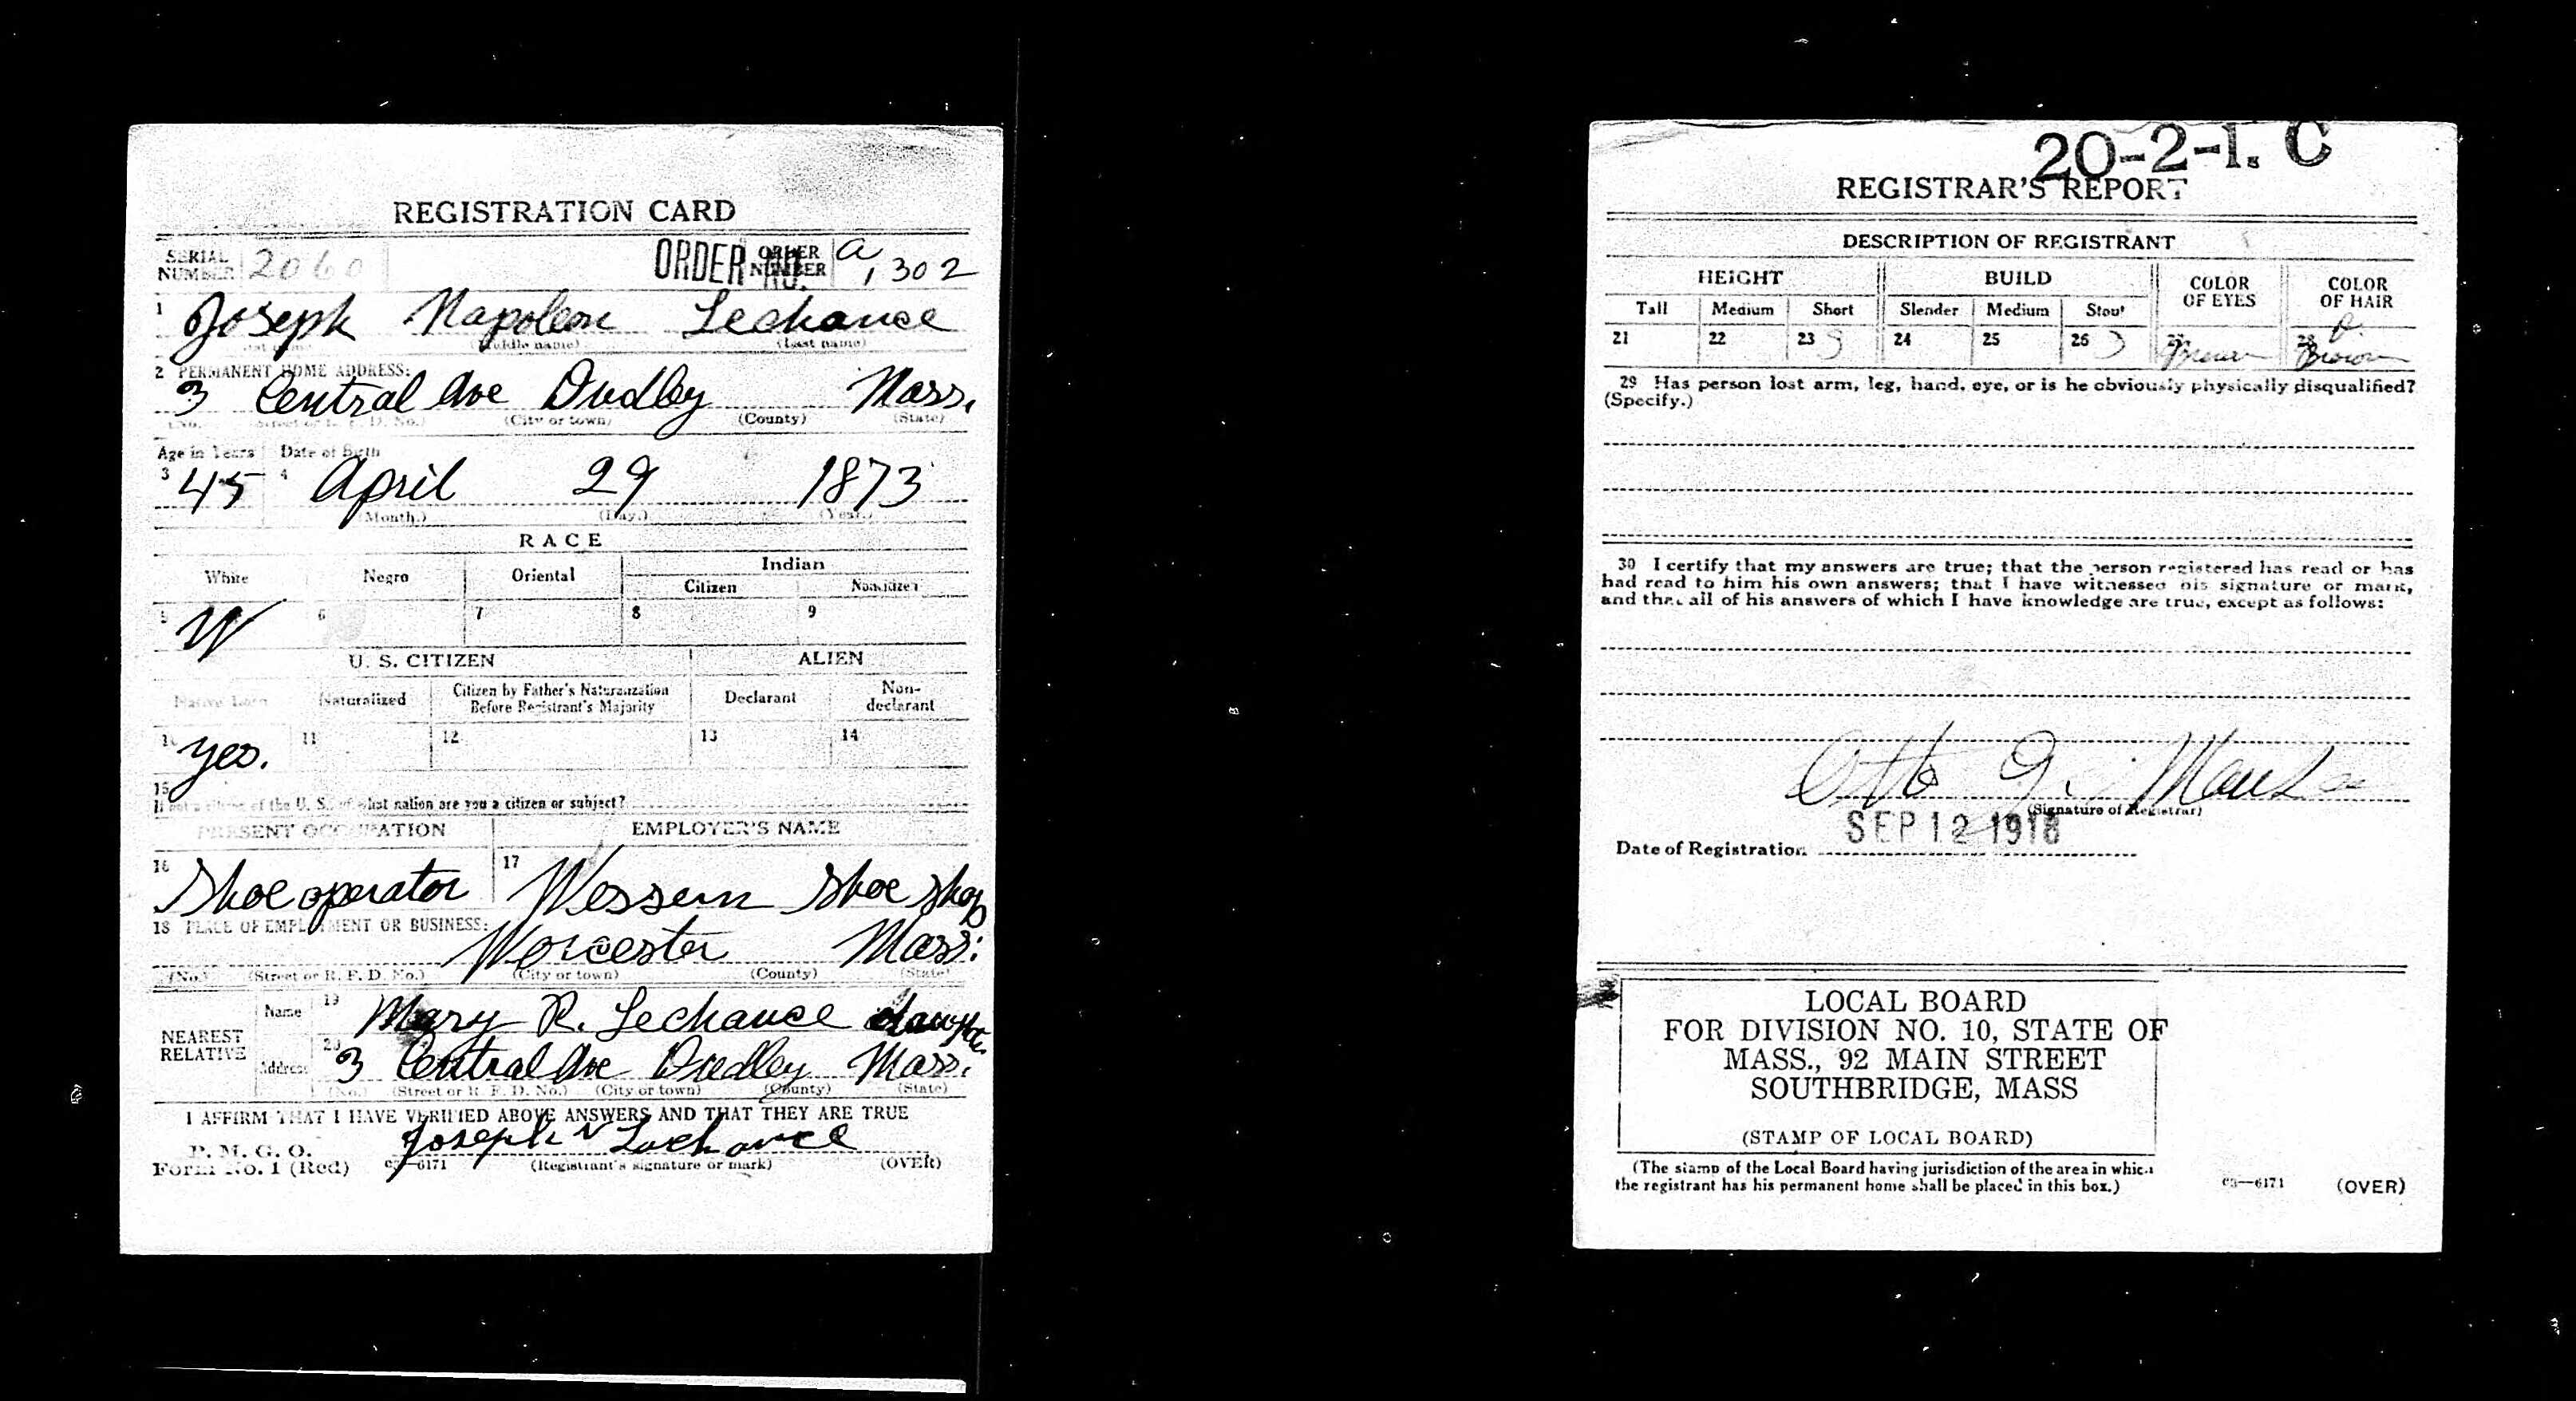 REGISTRATION CARD
SERIAL NUMBER 2060 ORDER NO. ORDER NUMBER a, 302
1 Joseph Napoleon Lechance
(Middle name) (Last name)
2 PERMANENT HOME ADDRESS:
3 Central Ave Dudley Mass.
(No.) (Street or R. F. D. No.) (City or town) (County) (State)
Age in Years Date of Birth
3 45 4 April 29 1873
(Month.) (Day.) (Year.)
RACE
White Negro Oriental Indian
Citizen Noncitizen
5 W 6 7 8 9
U. S. CITIZEN ALIEN
Native Born Naturalized Citizen by Father's Naturalization Before Registrant's Majority Declarant Non-declarant
10 yes. 11 12 13 14
15
If not a citizen of the U. S., of what nation are you a citizen or subject?
PRESENT OCCUPATION EMPLOYER'S NAME
16 Shoe operator 17 Wessern Shoe Shop
18 PLACE OF EMPLOYMENT OR BUSINESS:
Worcester Mass:
(No.) (Street or R. F. D. No.) (City or town) (County) (State)
NEAREST RELATIVE Name 19 Mary R. Lechance
Address 20 3 Central Ave Dudley Mass.
(No.) (Street or R. F. D. No.) (City or town) (County) (State)
I AFFIRM THAT I HAVE VERIFIED ABOVE ANSWERS AND THAT THEY ARE TRUE
P. M. G. O.
Form No. 1 (Red) c3—6171 Joseph N Lachance
(Registrant's signature or mark) (OVER)
20-2-1. C
REGISTRAR'S REPORT
DESCRIPTION OF REGISTRANT
HEIGHT BUILD COLOR OF EYES COLOR OF HAIR
Tall Medium Short Slender Medium Stout
21 22 23 24 25 26 27 Brown 28 Brown
29 Has person lost arm, leg, hand, eye, or is he obviously physically disqualified?
(Specify.)
30 I certify that my answers are true; that the person registered has read or has
had read to him his own answers; that I have witnessed his signature or mark,
and that all of his answers of which I have knowledge are true, except as follows:
Otto
(Signature of Registrar)
Date of Registration SEP 12 1918
LOCAL BOARD
FOR DIVISION NO. 10, STATE OF
MASS., 92 MAIN STREET
SOUTHBRIDGE, MASS
(STAMP OF LOCAL BOARD)
(The stamp of the Local Board having jurisdiction of the area in which
the registrant has his permanent home shall be placed in this box.)
c3—6171 (OVER)